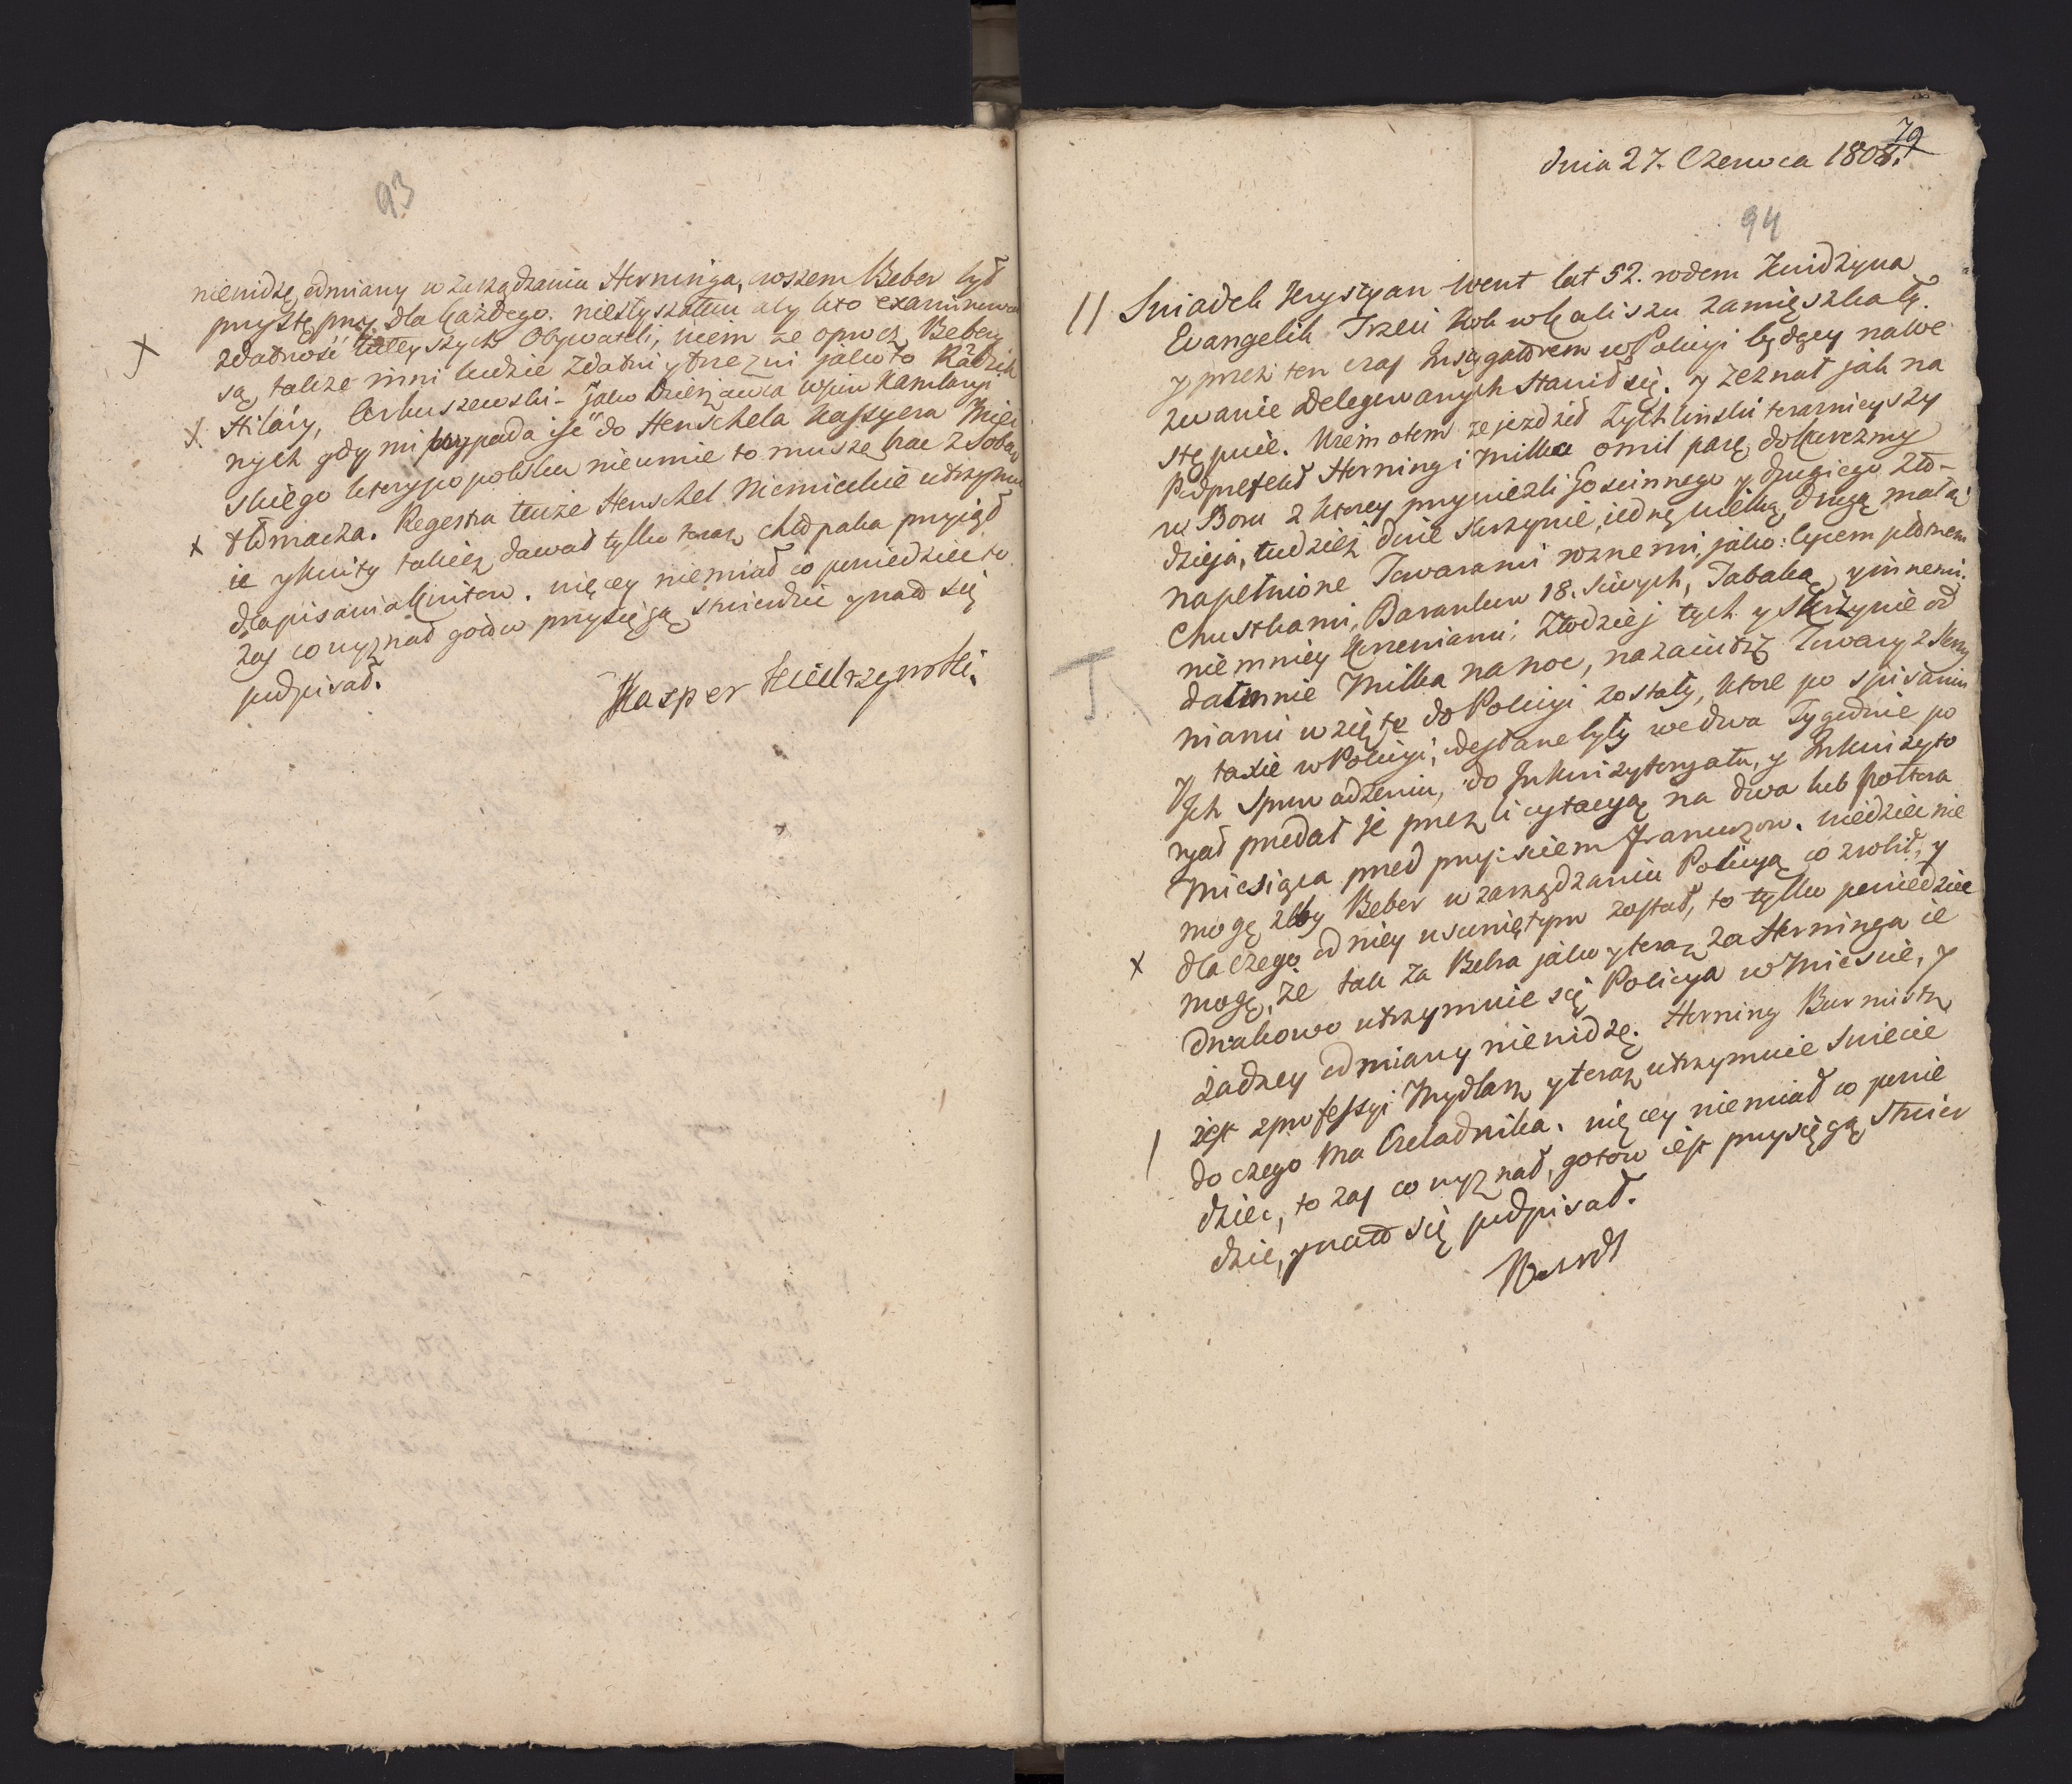 93
niewidzę odmiany w zarządzaniu Herninga, wszem Beber był
przystępny dla każdego. niesłyszałem aby kto examinował
zdatność tuteyszych Obywateli, wiem ze oprocz Bebery
są takze inni ludzie zdatni y trzezwi jako to Kadzich
Hilary, Arkuszewski - jako Dzierzawca wsiow Kamlaryi
nych gdy mi przypada iść do Henschela Kassyera Miey
skiego ktory po polsku nieumie to muszę brac z sobą
tłmacza. Regestra tenże Henschel Niemieckie utrzymu
ie y kwity takież dawał tylko teraz chłopaka przyiął
dla pisania kwitow. więcey niemiał co powiedziec to
zaś co wyznał gotow przysięgą stwierdzic y nato się
podpisał.
Kasper
79
dnia 27. Czerwca 1808.
94
11 Swiadek Krystyan Went lat 52. rodem Kwidzyna
Evangelik Trzeci Rok w Kaliszu zamięszkały.
y przez ten czas Instygatorem w Policyi będący na we
zwanie Delegowanych stawił się. y zeznał jak na
stępuie. Wiem otem ze jezdził Zychlinski terarnieyszy
Podprefekt Herning i Milka omil parę do karczmy
w Boru z ktorey przywiezli Goscinnego y drugiego Zło-
dzieja, tudzież dwie skrzynie, iednę wielką, drugą małą
napełnione Towarami roznemi, jako: lycem płotnem
Chustkami, Barankow 18. siwych, Tabaką y innemi.
niemniey Korzeniami; Złodziej tych y Skrzynie od
dał mnie Milka na noc, nazaiutrz Towary z Skrzy
niami wzięte do Policyi zostały, ktore po spisaniu
y taxie w Policyi, odesłane były we dwa Tygodnie po
Ich sprowadzeniu, do Inkwizytoryatu, y Inkwizyto
ryat przedał je przez licytacyą na dwa lub połtora
Miesiąca przed przyisciem Francuzow. wiedziec nie
mogę zeby Beber w zarządzaniu Policyą co zrobił, y
dla czego od niey usuniętym został, to tylko powiedziec
mogę, ze tak za Bebra jako y teraz za Herninga ie
dnakowo utrzymuie się Policya w Miescie, y
żadney odmiany niewidzę. Herning Burmistrz
iest z professyi Mydlarz y teraz utrzymuie Swiece
do czego ma Czeladnika. więcey niemiał co powie
dziec, to zaś co wyznał, gotow iest przysięgą stwier
dzic, y nato się podpisał.
Wendt